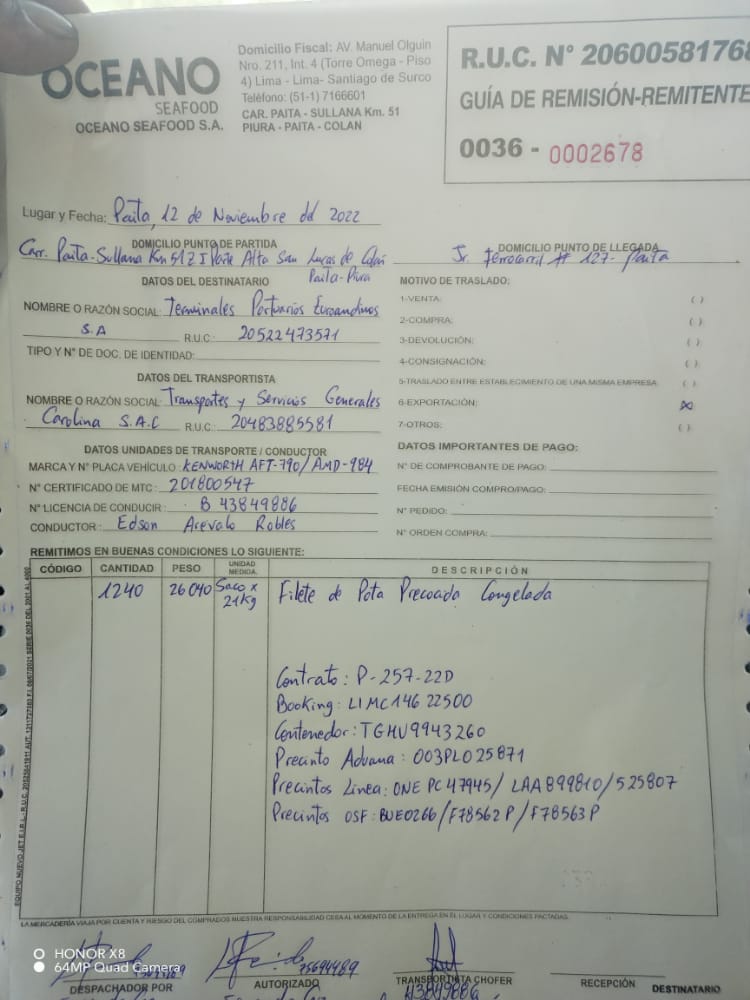 OCEANO
SEAFOOD
OCEANO SEAFOOD S.A.
Domicilio Fiscal: AV. Manuel Olguin
Nro. 211, Int. 4 (Torre Omega - Piso
4) Lima - Lima- Santiago de Surco
Teléfono: (51-1) 7166601
CAR. PAITA - SULLANA Km. 51
PIURA - PAITA - COLAN
R.U.C. N° 20600581768
GUÍA DE REMISIÓN-REMITENTE
0036 - 0002678
Lugar y Fecha: Paita, 12 de Noviembre del 2022
DOMICILIO PUNTO DE PARTIDA
Carr. Paita-Sullana Km 51 Z I Parte Alta San Lucas de Colan
Paita-Piura
DOMICILIO PUNTO DE LLEGADA
Jr. Ferrocarril # 127- Paita
DATOS DEL DESTINATARIO
NOMBRE O RAZÓN SOCIAL: Terminales Portuarios Euroandinos
S.A R.U.C: 20522473571
TIPO Y N° DE DOC. DE IDENTIDAD:
DATOS DEL TRANSPORTISTA
NOMBRE O RAZÓN SOCIAL: Transportes y Servicios Generales
Carolina S.A.C R.U.C: 20483885581
DATOS UNIDADES DE TRANSPORTE / CONDUCTOR
MARCA Y N° PLACA VEHÍCULO: KENWORTH AFT-790/AMD-984
N° CERTIFICADO DE MTC: 201800547
N° LICENCIA DE CONDUCIR: B 43849886
CONDUCTOR: Edson Arevalo Robles
MOTIVO DE TRASLADO:
1-VENTA: ( )
2-COMPRA: ( )
3-DEVOLUCIÓN: ( )
4-CONSIGNACIÓN: ( )
5-TRASLADO ENTRE ESTABLECIMIENTO DE UNA MISMA EMPRESA: ( )
6-EXPORTACIÓN: (X)
7-OTROS: ( )
DATOS IMPORTANTES DE PAGO:
N° DE COMPROBANTE DE PAGO:
FECHA EMISIÓN COMPRO/PAGO:
N° PEDIDO:
N° ORDEN COMPRA:
REMITIMOS EN BUENAS CONDICIONES LO SIGUIENTE:
CÓDIGO CANTIDAD PESO UNIDAD MEDIDA. DESCRIPCIÓN
1240 26040 Saco x 21Kg Filete de Pota Precocida Congelada
Contrato: P-257-22D
Booking: LIMC14622500
Contenedor: TGHU9943260
Precinto Aduana: 003PLO25871
Precintos Linea: ONE PC47945/ LAA899810/525807
Precintos OSF: BUE0266/F78562P/F78563P
LA MERCADERÍA VIAJA POR CUENTA Y RIESGO DEL COMPRADOR, NUESTRA RESPONSABILIDAD CESA AL MOMENTO DE LA ENTREGA EN EL LUGAR Y CONDICIONES PACTADAS.
75694489
43849886
DESPACHADOR POR
AUTORIZADO
TRANSPORTISTA CHOFER
RECEPCIÓN DESTINATARIO
HONOR X8
64MP Quad Camera